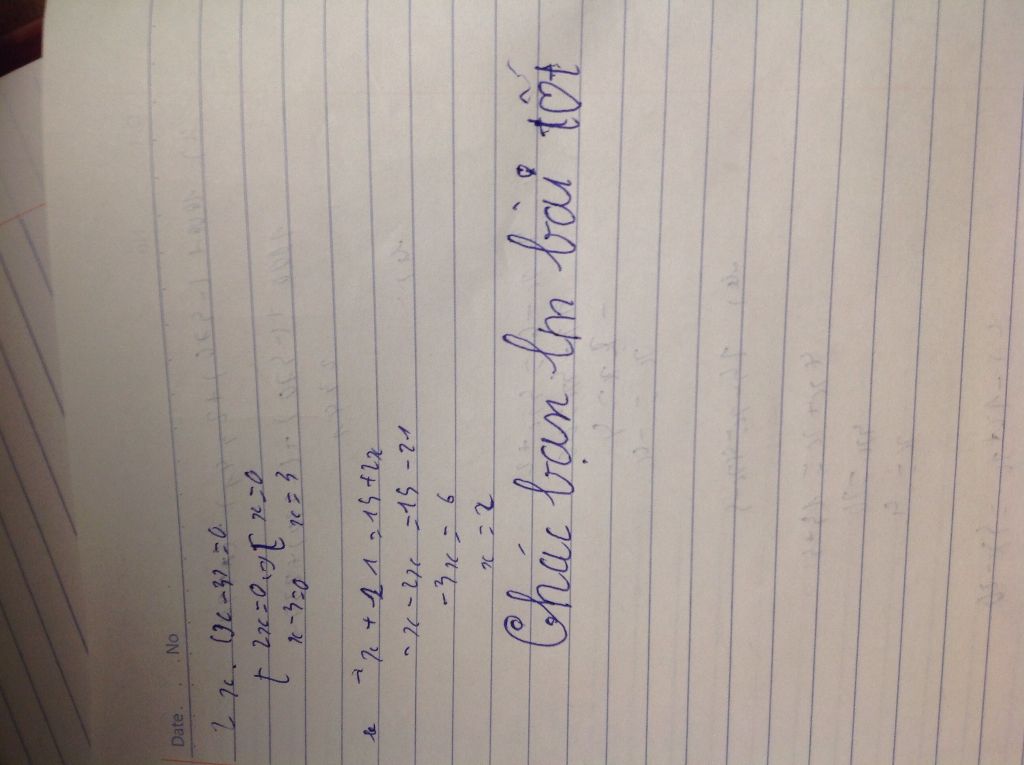 Date. No
2x.(x-3)=0
[ 2x=0 <=> [ x=0
x-3=0 x=3
-x+21=15+2x
-x-2x=15-21
-3x=6
x=2
Chác bạn lm bài tốt